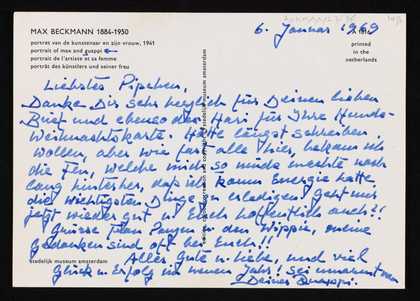 MAX BECKMANN 1884-1950
portret van de kunstenaar en zijn vrouw, 1941
portrait of max and quappi
portrait de l'artiste et sa femme
porträt des künstlers und seiner frau
6. Januar 1969
printed
in the
netherlands
Liebstes Pipchen,
Danke Dir sehr herzlich für Deinen lieben
Brief und ebenso den Hari für Ihre Hunds-
Weihnachtskarte. Hatte längst schreiben
wollen, aber wie fast alle hier, bekam ich
die Flu, welche mich so müde machte noch
lang hinterher, dass ich kaum Energie hatte
die wichtigsten Dinge zu erledigen! Geht mir
jetzt wieder gut u Euch hoffentlich auch!!
Grüsse den u den Wippie, meine
Gedanken sind oft bei Euch!!
Alles Gute u Liebe, und viel
Glück u Erfolg im neuen Jahr! Sei umarmt von
Deiner Quappi
stedelijk museum amsterdam
stedelijk museum amsterdam